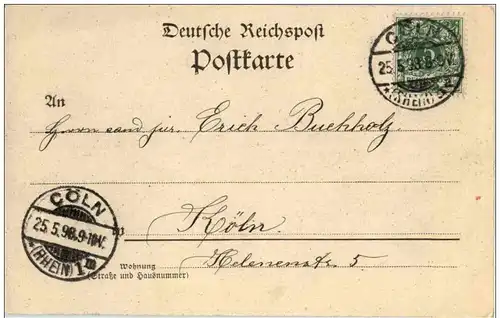 Deutsche Reichspost
Postkarte
CÖLN
25.5.98.9-10V.
(RHEIN)
An
Herrn cand. jur. Erich Buchholz
CÖLN
25.5.98.9-10V.
*(RHEIN) 1 m
in
Köln.
Helenenstr. 5
Wohnung
(Straße und Hausnummer)